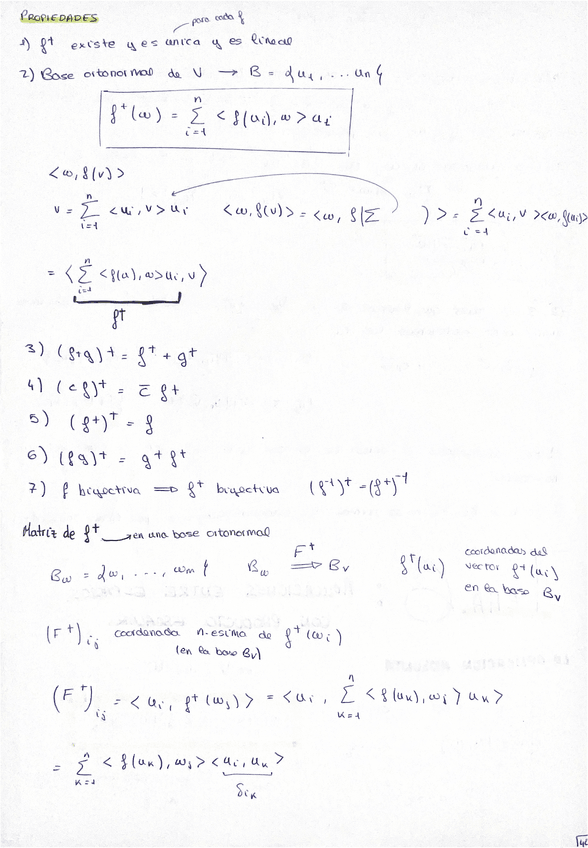 PROPIEDADES
para cada f
1) f† existe y es única y es lineal
2) Base ortonormal de V → B = {u1, ... un}
f†(ω) = Σ_{i=1}^{n} < f(ui), ω > ui
<ω, f(v)>
v = Σ_{i=1}^{n} <ui, v> ui <ω, f(v)> = <ω, f(Σ )> = Σ_{i=1}^{n} <ui, v><ω, f(ui)>
= < Σ_{i=1}^{n} <f(u), ω> ui, v >
f†
3) (f+g)† = f† + g†
4) (c f)† = c̄ f†
5) (f†)† = f
6) (fg)† = g† f†
7) f biyectiva ⇒ f† biyectiva (f⁻¹)† = (f†)⁻¹
Matriz de f† → en una base ortonormal
Bω = {ω, ..., ωm} Bω F† ⇒ Bv f†(ui) coordenadas del
vector f†(ui)
en la base Bv
(F†)ij coordenada n-esima de f†(ωi)
(en la base Bv)
(F†)ij = < ui, f†(ωj) > = < ui, Σ_{k=1}^{n} < f(uk), ωj > uk >
= Σ_{k=1}^{n} < f(uk), ωj > < ui, uk >
δik